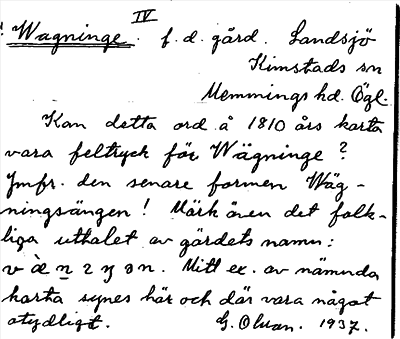 IV
Wagninge. f. d. gård. Landsjö
Kimstads sn
Memmings hd. Ögl.
Kan detta ord å 1810 års karta
vara feltryck för Wägninge?
Jmfr. den senare formen Wäg-
ningsängen! Märk även det folk-
liga uttalet av gärdets namn:
Mitt ex. av nämnda
karta synes här och där vara något
otydligt. G. Olsson. 1937.